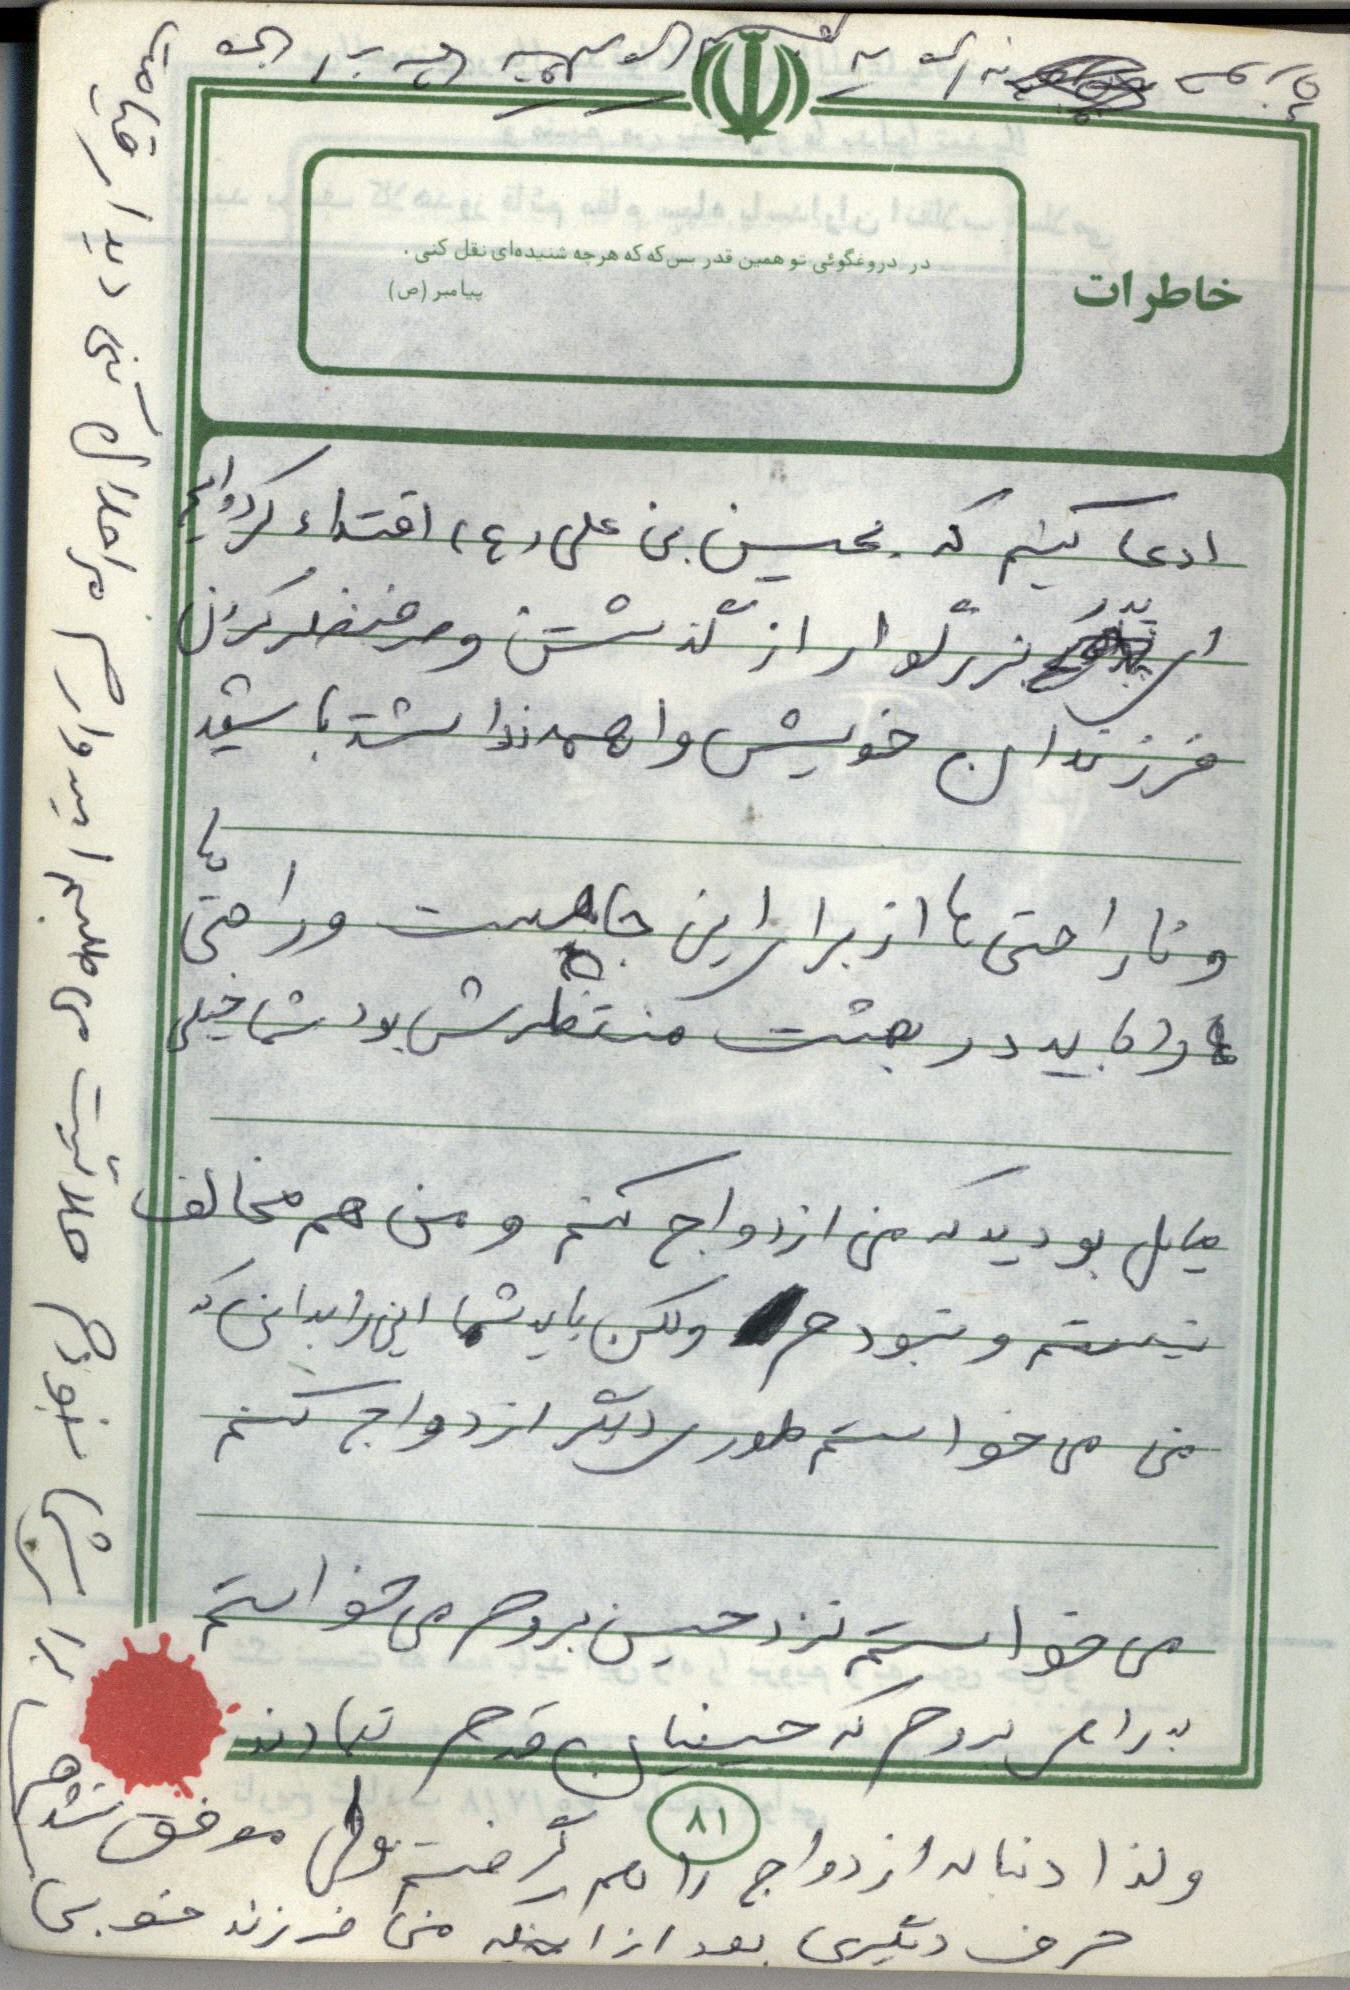 خاطرات
در دروغگوئی تو همین قدر بس که که هرچه شنیده‌ای نقل کنی .
پیامبر (ص)
ادعا کنیم که بحسین بن علی (ع) اقتداء کرده‌ایم
ای پدر بزرگوار از گذشتن و صرفنظر کردن
فرزندان خویش واهمه نداشته باشید
و ناراحتی ها از برای این جاست و راحتی ها
را باید در بهشت منتظرش بود شما خیلی
مایل بودید که من ازدواج کنم و من هم مخالف
نیستم و نبودم ولکن باید شما این را بدانی که
من می خواستم طوری دیگر ازدواج کنم
می خواستم نزد حسین بروم می خواستم
به راهی بروم که حسینیان قدم نهادند
۸۱
ولذا دنباله ازدواج را هم گرفتم ولی موفق نشدم
حرف دیگری بعد از اینکه من فرزند خوبی
برایش نبودم حلالیت می طلبم امیدوارم مرا حلال کنی دیدار قیامت